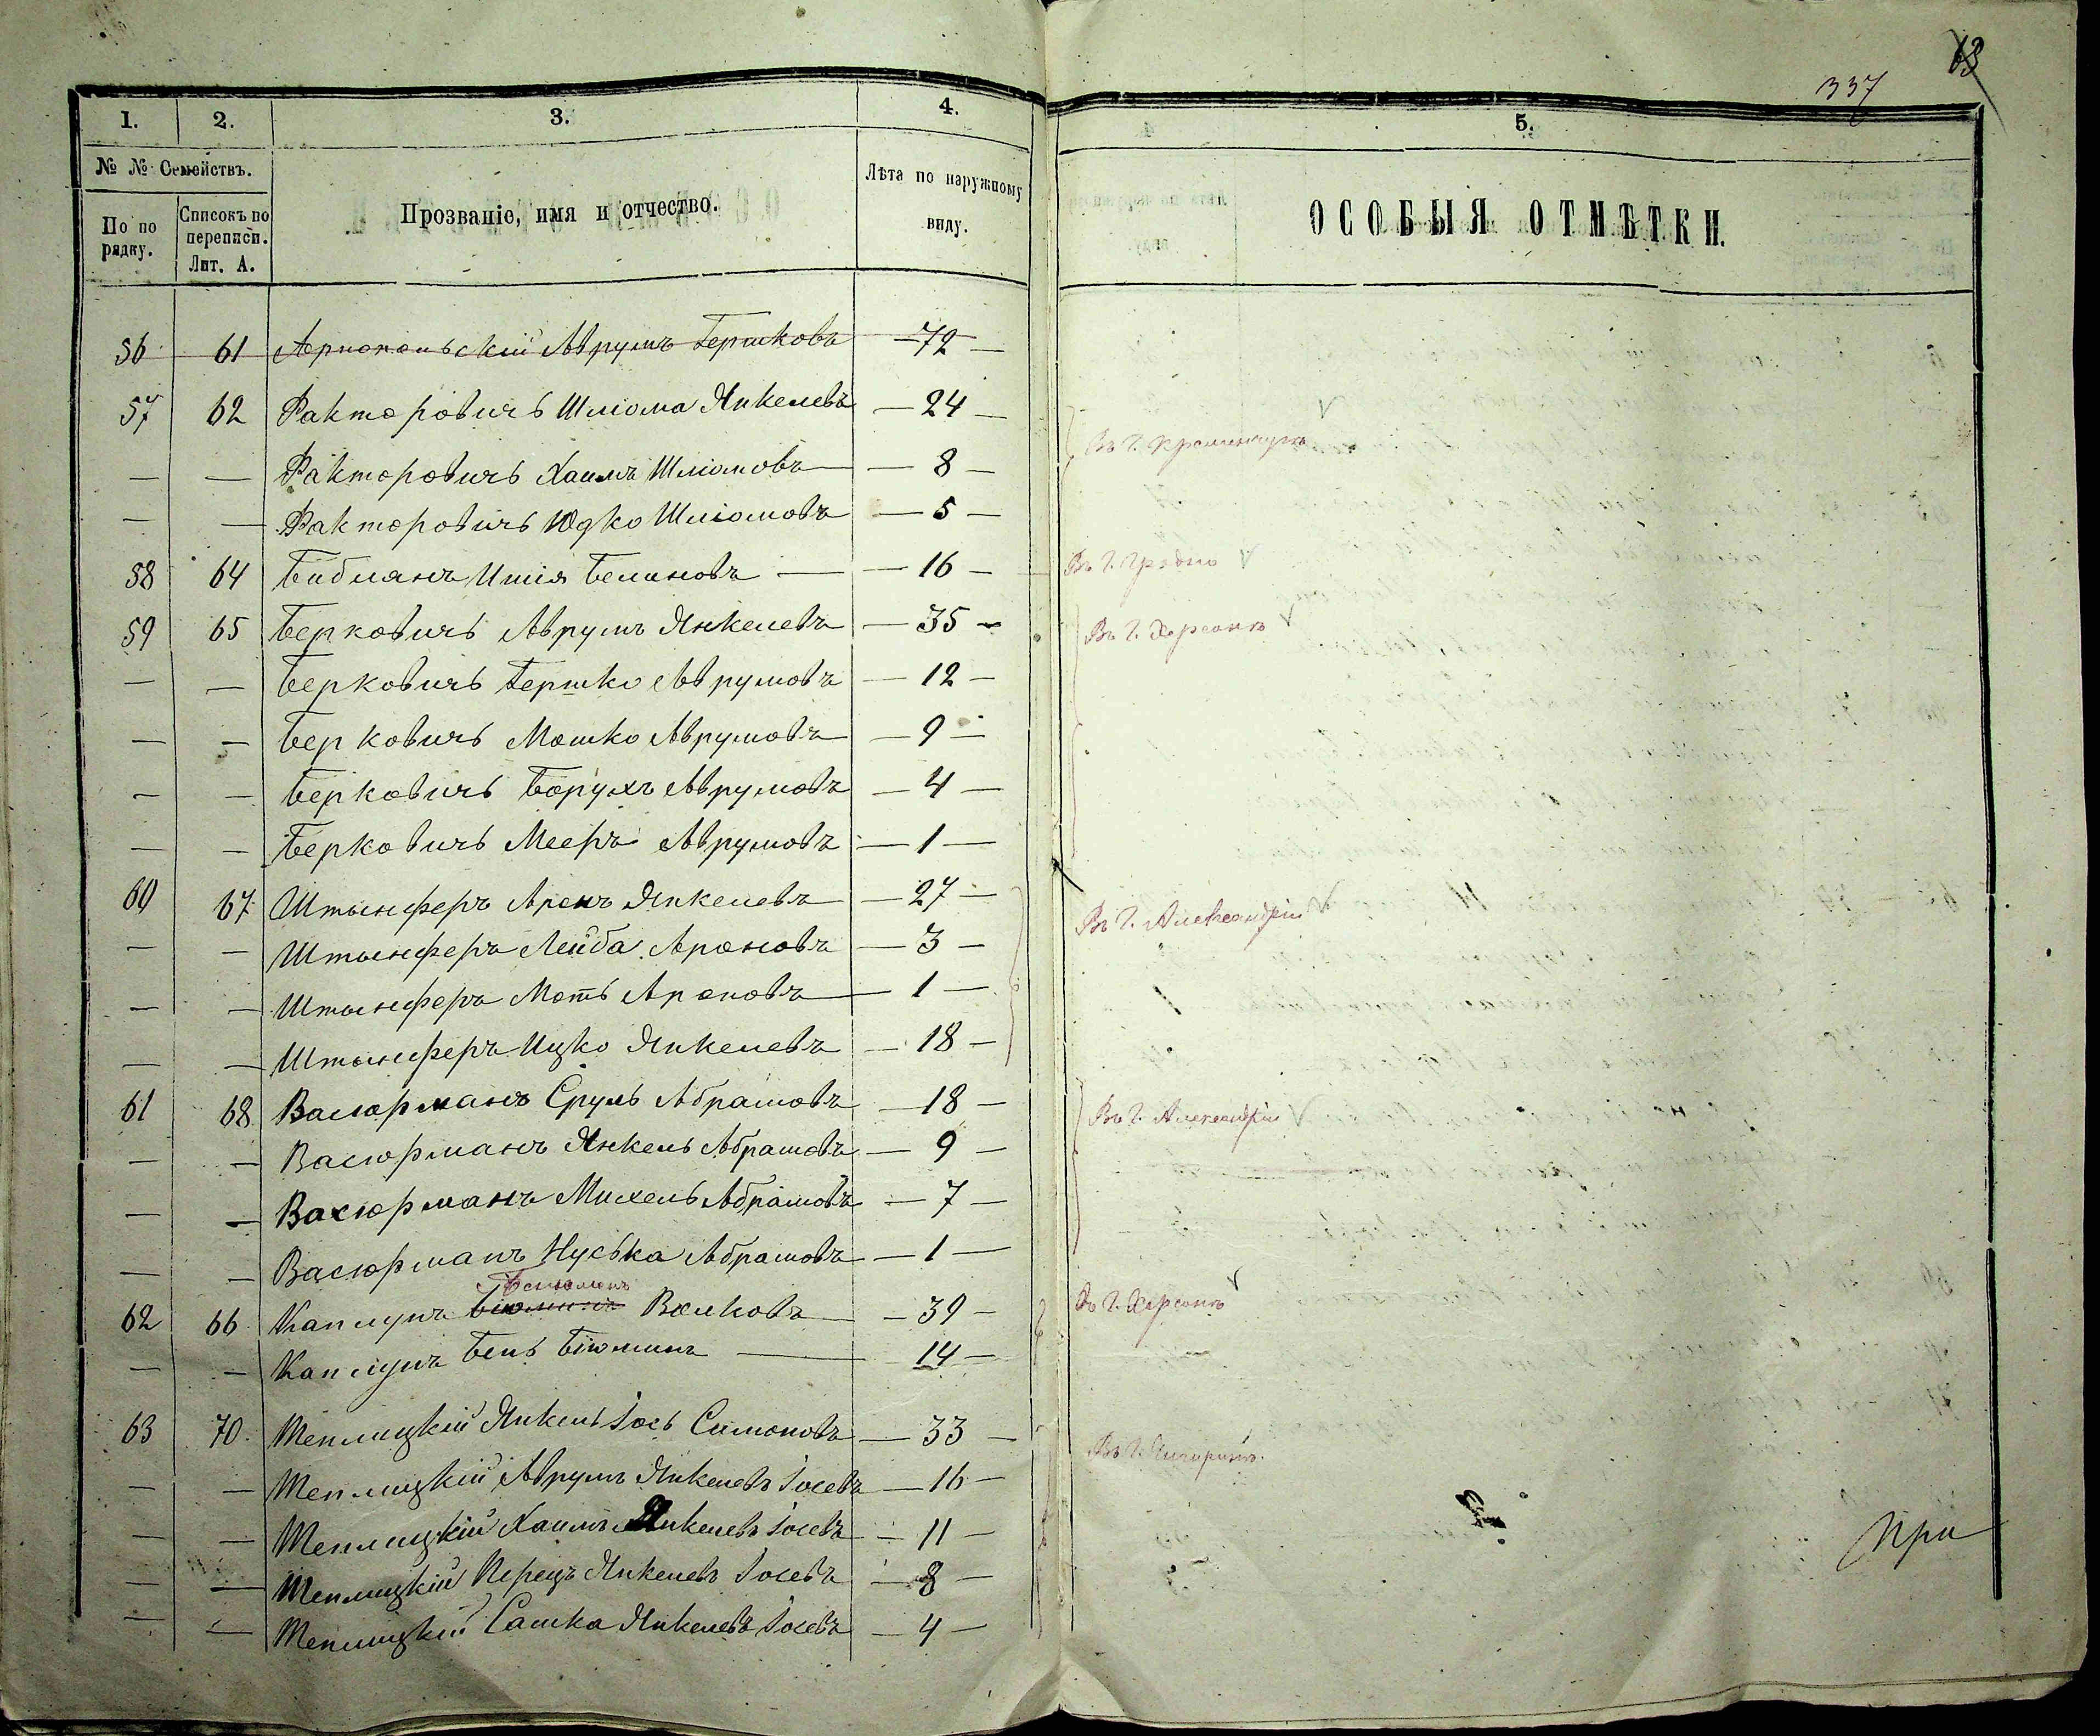 63
337
1. 2. 3. 4. 5.
№ № Семействъ.
По по рядку. Списокъ по переписи. Лит. А. Прозваніе, имя и отчество. Лѣта по наружному виду. ОСОБЫЯ ОТМѢТКИ.
56 61 Аврумъ Гершковъ — 72 —
57 62 Факторовичъ Шліома Янкелевъ — 24 —
— — Факторовичъ Хаимъ Шліомовъ — 8 — Въ г. Кременчугѣ
— — Факторовичъ Юдко Шліомовъ — 5 —
58 64 Бибманъ Ишія — 16 — Въ г. Гродно
59 65 Берковичъ Аврумъ Янкелевъ — 35 — Въ г. Херсонѣ
— — Берковичъ Гершко Аврумовъ — 12 —
— — Берковичъ Мошко Аврумовъ — 9 —
— — Берковичъ Борухъ Аврумовъ — 4 —
— — Берковичъ Мееръ Аврумовъ — 1 —
60 67 Штынферъ Аронъ Янкелевъ — 27 — Въ г. Александріи
— — Штынферъ Лейба Ароновъ — 3 —
— — Штынферъ Моть Ароновъ — 1 —
— — Штынферъ Ицко Янкелевъ — 18 —
61 68 Васюрманъ Сруль Абрамовъ — 18 — Въ г. Александріи
— — Васюрманъ Янкель Абрамовъ — 9 —
— — Васюрманъ Михель Абрамовъ — 7 —
— — Васюрманъ Нуська Абрамовъ — 1 —
62 66 Каплунъ Волковъ — 39 — Въ г. Херсонѣ
— — Каплунъ Бень — 14 —
63 70 Теплицкій Янкель Іось Симоновъ — 33 — Въ г. Чигиринѣ.
— — Теплицкій Аврумъ Янкелевъ Іосевъ — 16 —
— — Теплицкій Хаимъ Янкелевъ Іосевъ — 11 —
— — Теплицкій Перецъ Янкелевъ Іосевъ — 8 —
— — Теплицкій Сашка Янкелевъ Іосевъ — 4 —
При